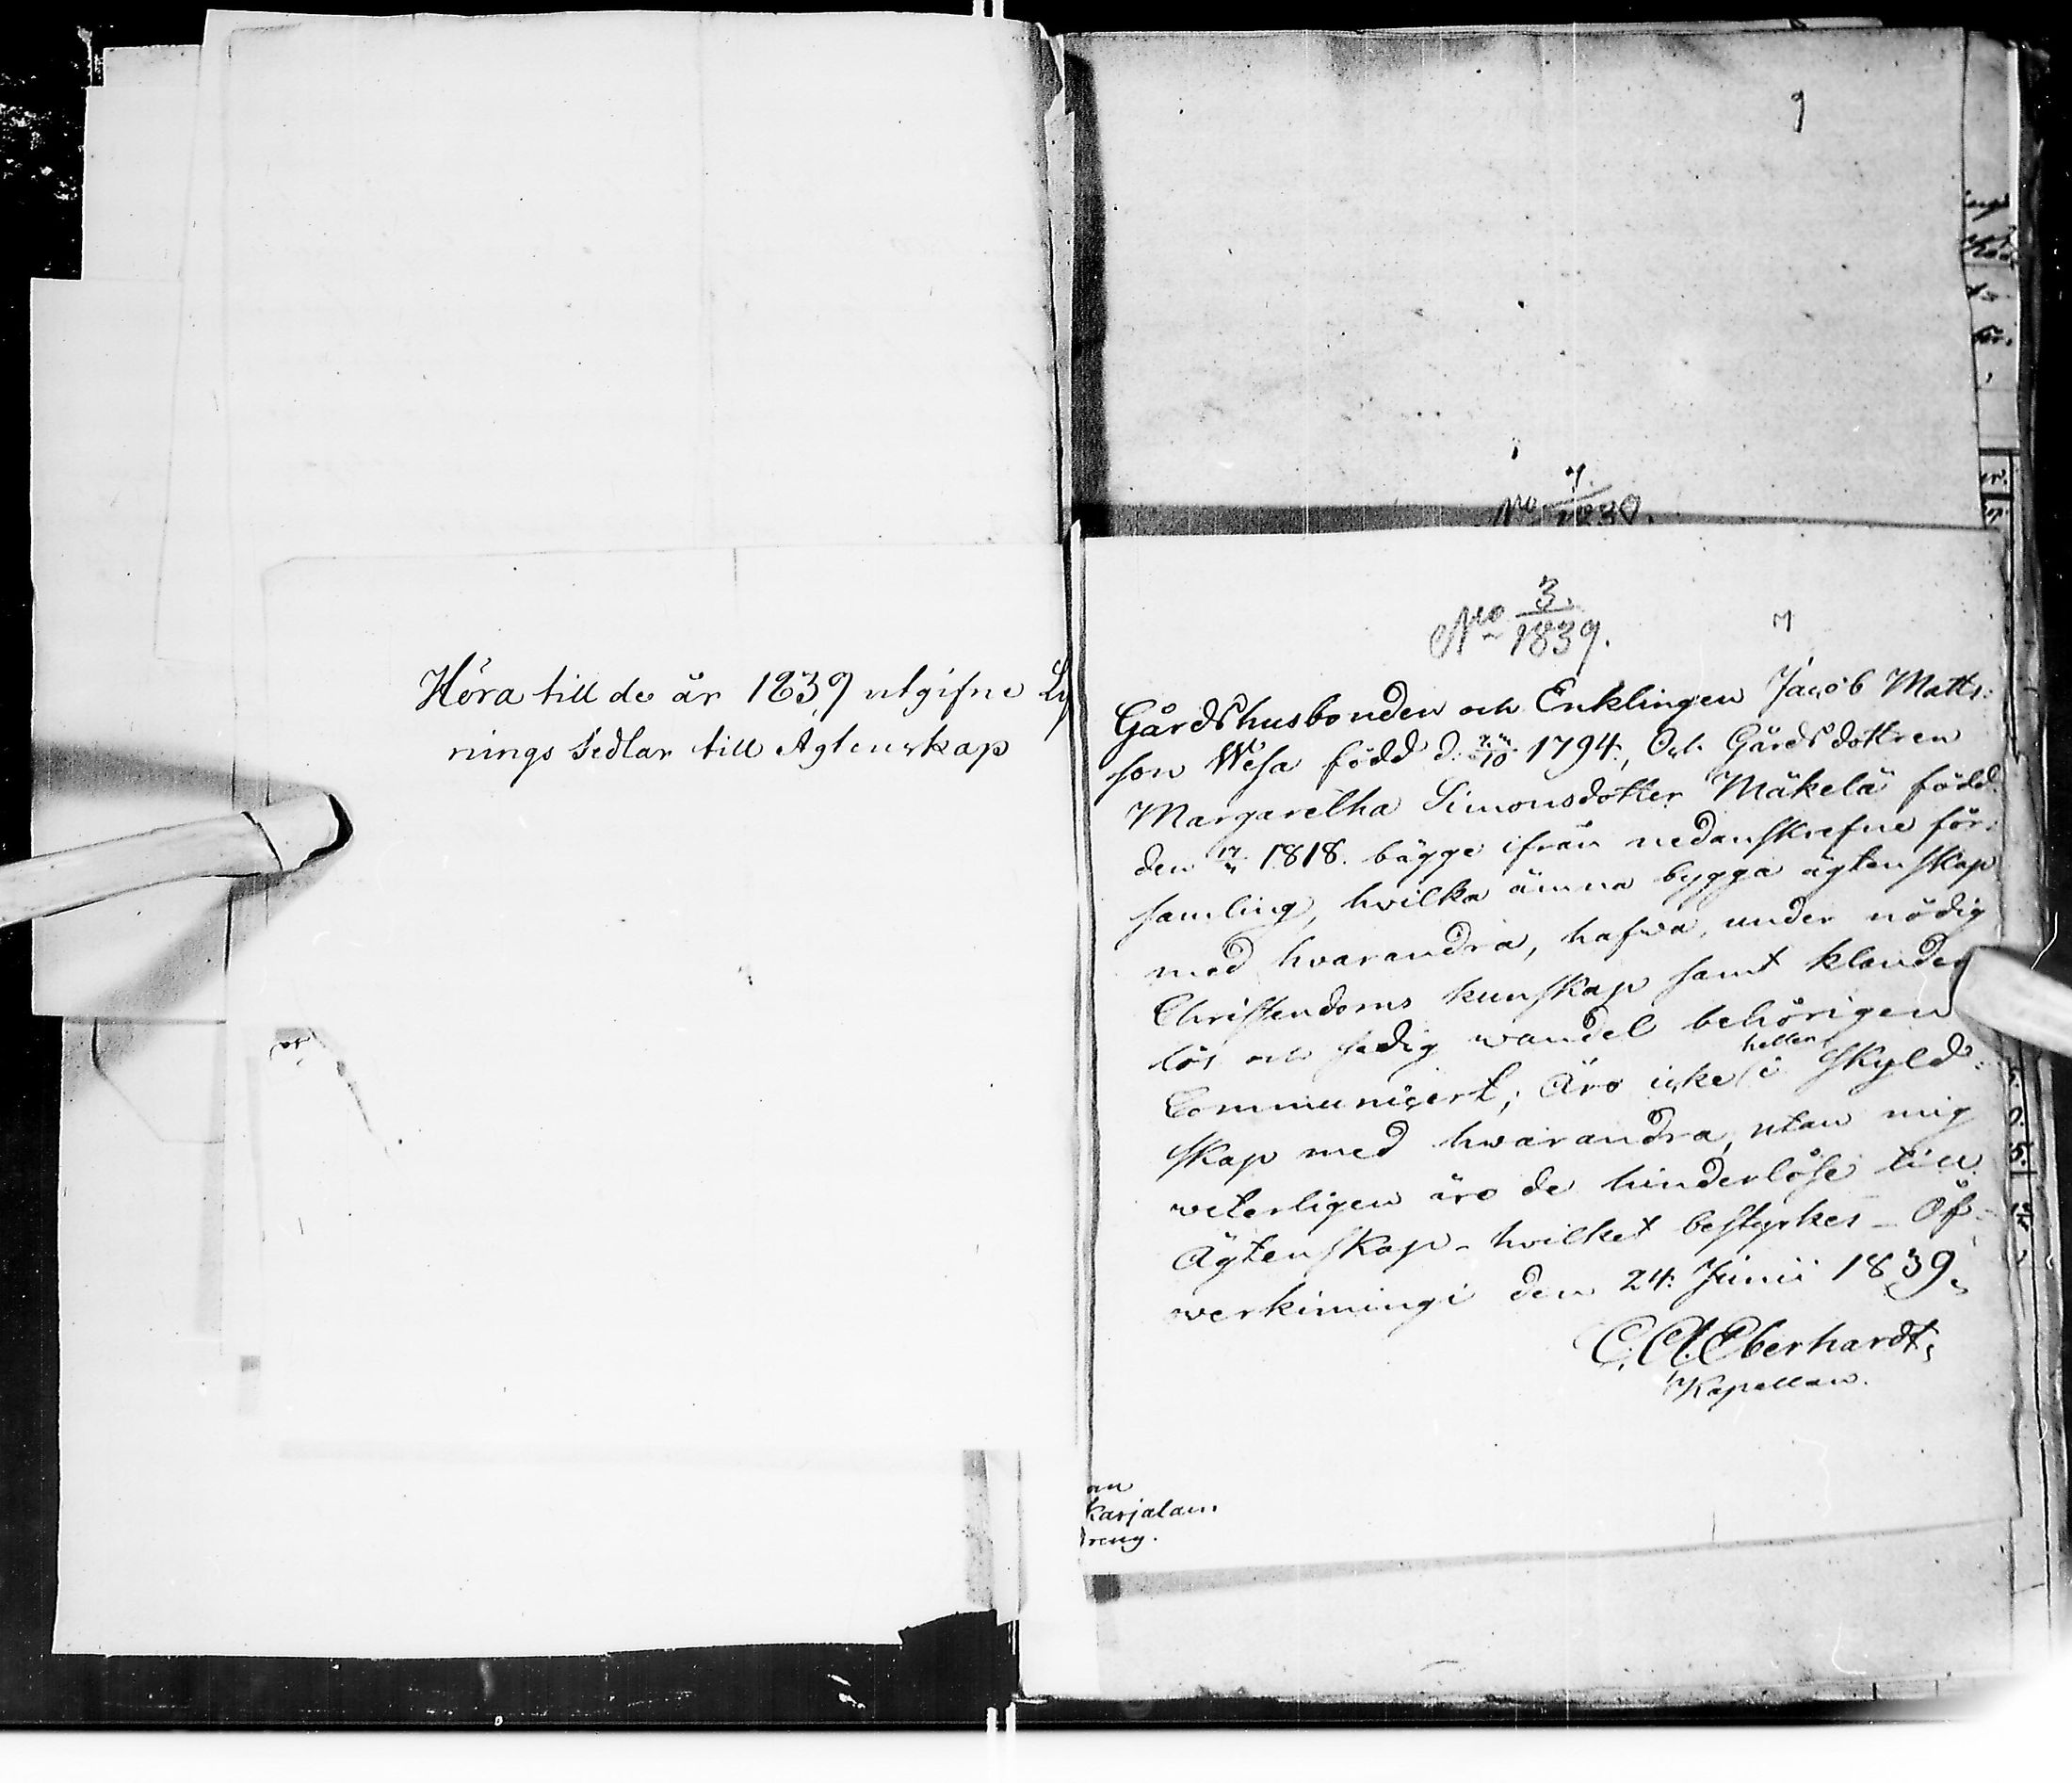 Höra till de år 1839 utgifne Ly
nings Sedlar till Agtenskap
9
No 4/1839.
No 3/1839.
Gårdshusbonden och Enklingen Jacob Matts:
son Wesa född d: /10 1794., Och Gårdsdottren
Margaretha Simonsdotter Mäkelä född
den 1818. bägge ifrån nedanskrefne för:
samling, hvilka ämna bygga ägtenskap
med hvarandra, hafwa, under nödig
Christendoms kunskap samt klander
lös och sedig wandel behörigen
Communicert; äro icke heller i Skyld:
skap med hwarandra, utan mig
veterligen äro de hinderlöse till
Ägtenskap - hvilket bestyrkes - Öf:
werkimingi den 24: Junii 1839.
C. A. Eberhardt,
Kapellan.
an
Karjalain
dreng.